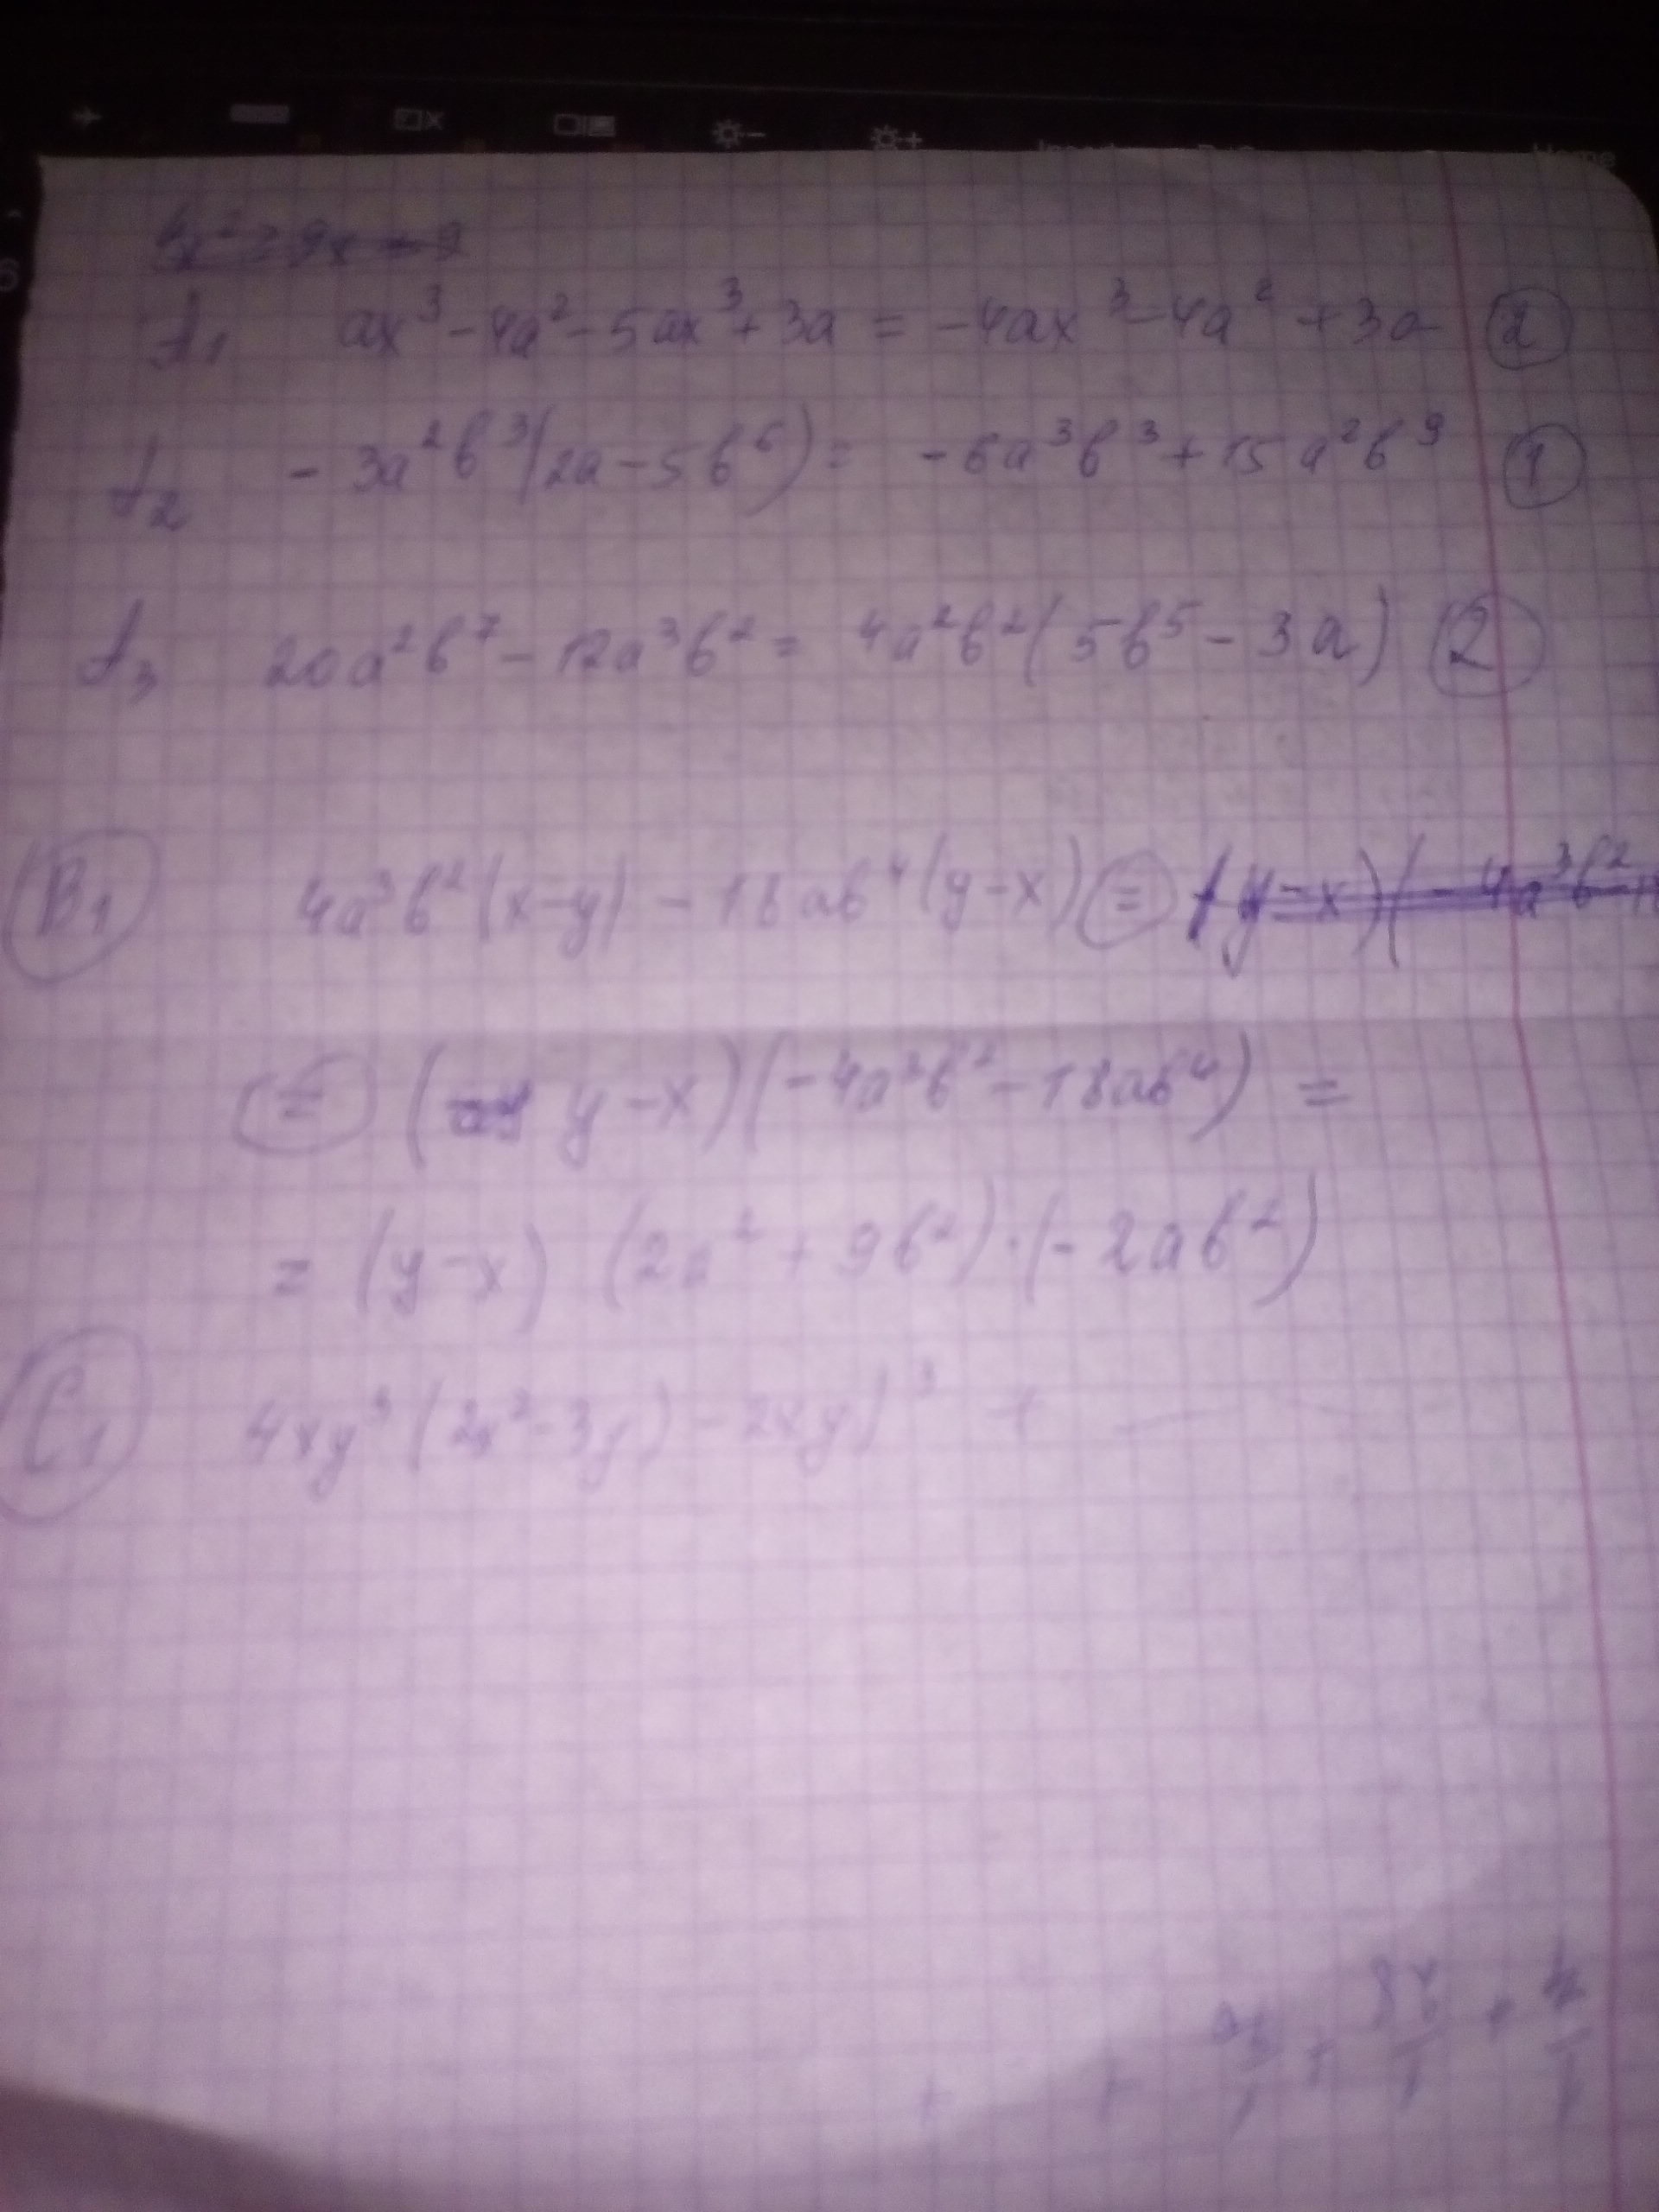 A₁ ax³ - 4a² - 5ax³ + 3a = -4ax³ - 4a² + 3a ②
A₂ - 3a²b³(2a - 5b⁶) = -6a³b³ + 15a²b⁹ ①
A₃ 20a²b⁷ - 12a³b² = 4a²b²(5b⁵ - 3a) ②
B₁ 4a³b²(x-y) - 18ab⁴(y-x) = (y-x)(-4a³b²
= (y-x)(-4a³b² - 18ab⁴) =
= (y-x) (2a² + 9b²)·(-2ab²)
C₁ 4xy³(2x² - 3y) - 2xy)³ +
Home